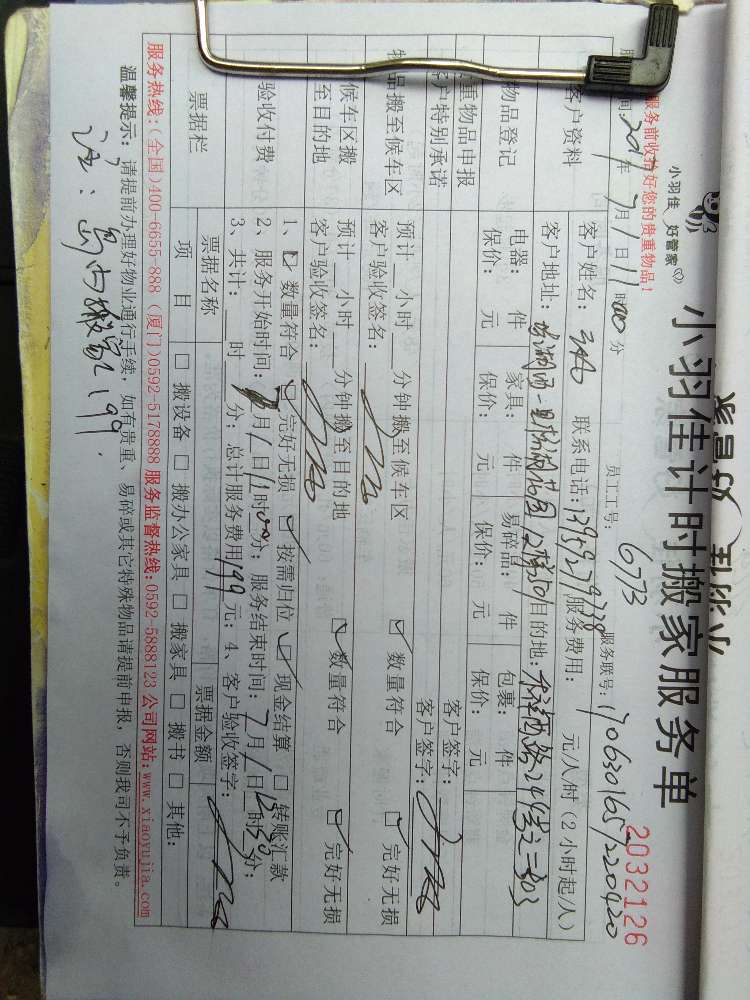 小羽佳 好管家
小羽佳计时搬家服务单
2032126
服务前收拾好您的贵重物品！
员工工号： 6773
服务联号：170630165722
间 2017年 7月 1日 11时00分
客户资料
客户姓名：
联系电话：
服务费用： 元/小时（2小时起/人）
客户地址：
目的地：
物品登记
电器： 件 家具： 件 易碎品： 件 包裹： 件
保价： 元 保价： 元 保价： 元 保价： 元
重物品申报
客户签字：
客户特别承诺
客户签字：
品搬至候车区
预计 小时 分钟搬至候车区 ☑ 数量符合 ☑ 完好无损
客户验收签名：
候车区搬至目的地
预计 小时 分钟搬至目的地 ☑ 数量符合 ☑ 完好无损
客户验收签名：
验收付费
1、☑ 数量符合 ☑ 完好无损 ☑ 按需归位 ☑ 现金结算 ☐ 转账汇款
2、服务开始时间： 7月1日11时00分；服务结束时间：7月1日12时50分；
3、共计： 时 分；总计服务费用199元；4、客户验收签字：
票据栏
票据名称 票据金额
项 目 ☐ 搬设备 ☐ 搬办公家具 ☐ 搬家具 ☐ 搬书 ☐ 其他：
服务热线：(全国)400-6655-888 (厦门)0592-5178888 服务监督热线：0592-5888123 公司网站：www.xiaoyujia.com
温馨提示： 请提前办理好物业通行手续，如有贵重、易碎或其它特殊物品请提前申报，否则我司不予负责。
注：岛内搬家199.